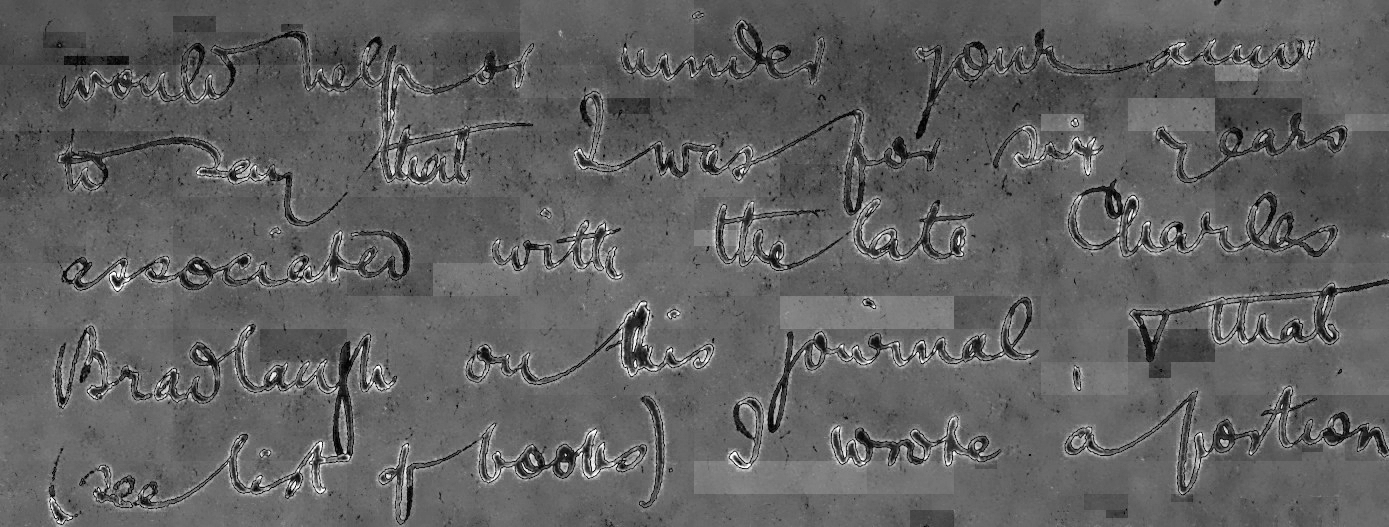 would help or under your
to say that I was for six years
associated with the late Charles
Bradlaugh on his journal & that
(see list of books) I wrote a portion